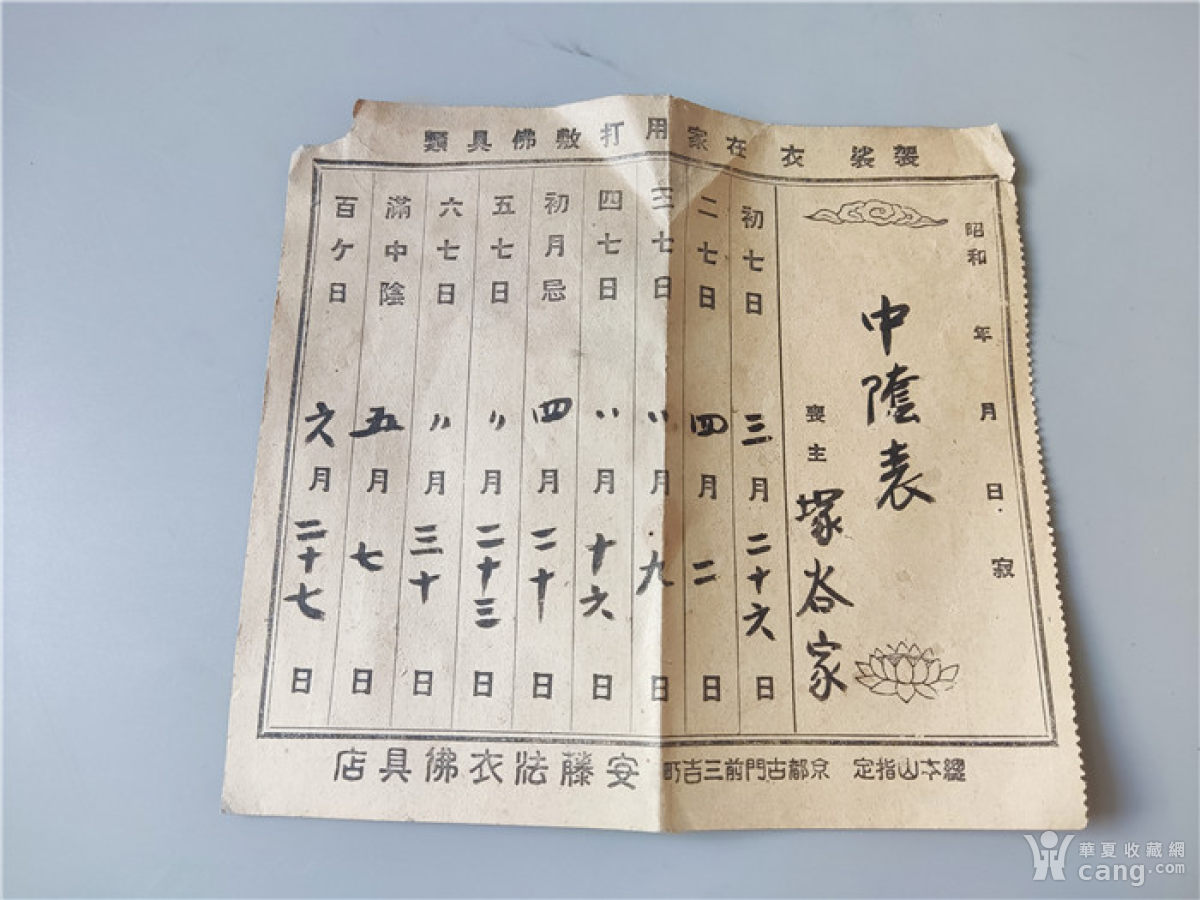 袈裟衣在家用打敷佛具類
昭和 年 月 日 寂
中陰表
喪主 塚谷家
初七日 三月二十六日
二七日 四月二日
三七日 〃月九日
四七日 〃月十六日
初月忌 四月二十日
五七日 〃月二十三日
六七日 〃月三十日
滿中陰 五月七日
百ケ日 六月二十七日
總本山指定 京都古門前三吉町 安藤法衣佛具店
華夏收藏網
cang.com